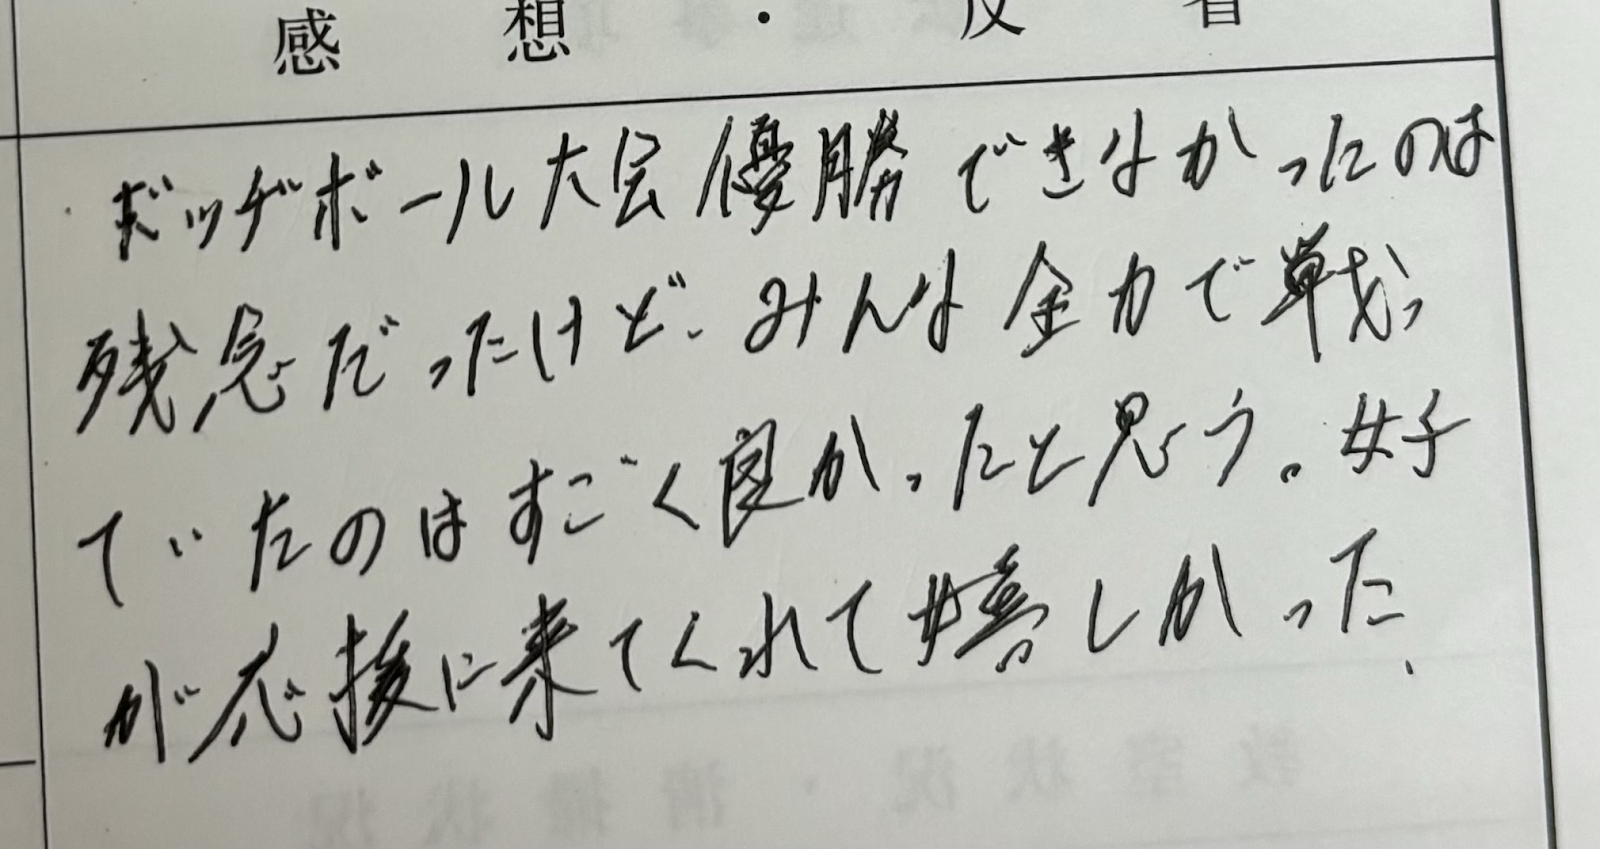 感想・反省
ドッヂボール大会優勝できなかったのは
残念だったけど、みんな全力で戦っ
ていたのはすごく良かったと思う。女子
が応援に来てくれて嬉しかった。
教室状況・清掃状況